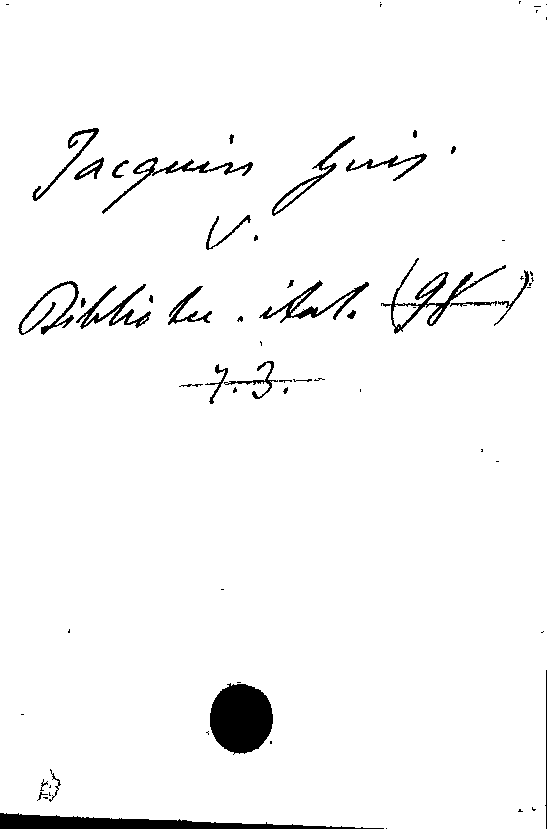 Jacquin Guis.
V.
Bibliothec. ital. (98)
7.3.